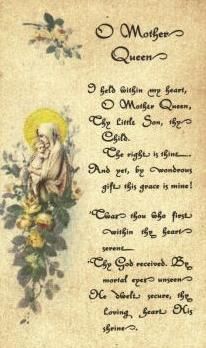 O Mother
Queen
I held within my heart,
O Mother Queen,
Thy Little Son, thy
Child.
The right is thine....
And yet, by wondrous
gift this grace is mine!
'Twas thou who first
within thy heart
serene
Thy God received. By
mortal eyes unseen
He dwelt secure, thy
loving heart His
shrine.